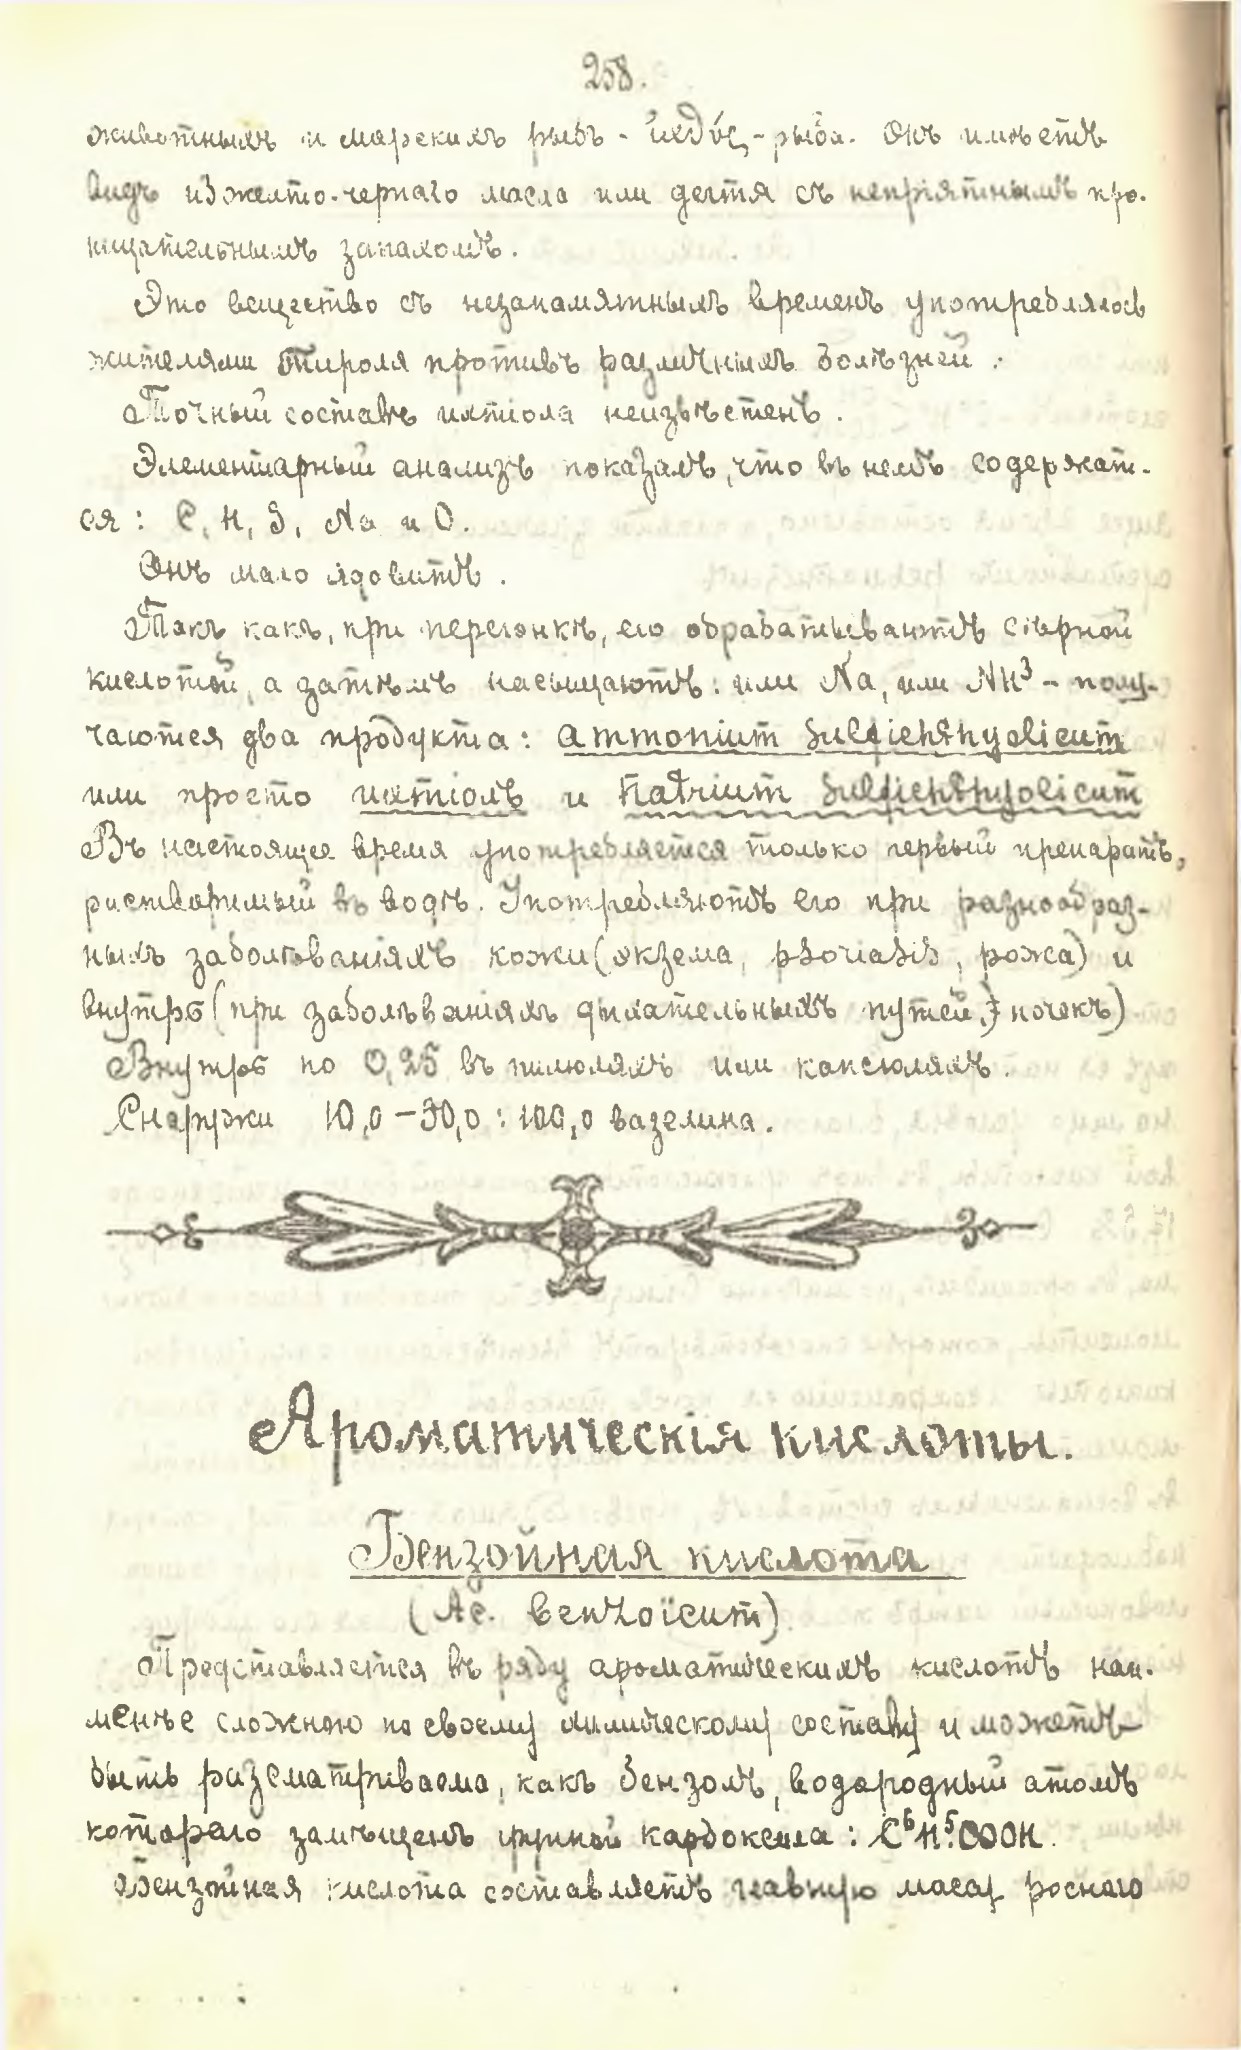 258.
животныхъ и морскихъ рыбъ - ἰχθύς - рыба. Онъ имѣетъ
видъ изжелто-чернаго масла или дегтя съ непріятнымъ про-
ницательнымъ запахомъ.
Это вещество съ незапамятныхъ временъ употреблялось
жителями Тироля противъ различныхъ болѣзней.
Точный составъ ихтіола неизвѣстенъ.
Элементарный анализъ показалъ, что въ немъ содержат-
ся: C, H, S, Na и O.
Онъ мало ядовитъ.
Такъ какъ, при перегонкѣ, его обрабатываютъ сѣрной
кислотой, а затѣмъ насыщаютъ: или Na, или NH³ - полу-
чаются два продукта: Ammonium Sulfichthyolicum
или просто ихтіолъ и Natrium Sulfichthyolicum
Въ настоящее время употребляется только первый препаратъ,
растворимый въ водѣ. Употребляютъ его при разнообраз-
ныхъ заболѣваніяхъ кожи (экзема, psoriasis, рожа) и
внутрь (при заболѣваніяхъ дыхательныхъ путей, почекъ)
Внутрь по 0,25 въ пилюляхъ или капсюляхъ.
Снаружи 10,0 - 30,0 : 100,0 вазелина.
Ароматическія кислоты.
Бензойная кислота
(Ac. benzoïcum)
Представляется въ ряду ароматическихъ кислотъ наи-
менѣе сложною по своему химическому составу и можетъ
быть разсматриваема, какъ бензолъ, водородный атомъ
котораго замѣщенъ группой карбоксила: C⁶H⁵.COOH.
Бензойная кислота составляетъ главную массу роснаго